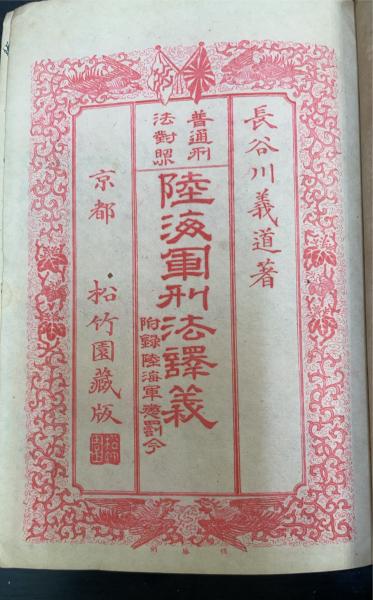 長谷川義道著
普通刑
法對照
陸海軍刑法譯義
附録陸海軍懲罰令
京都 松竹園藏版